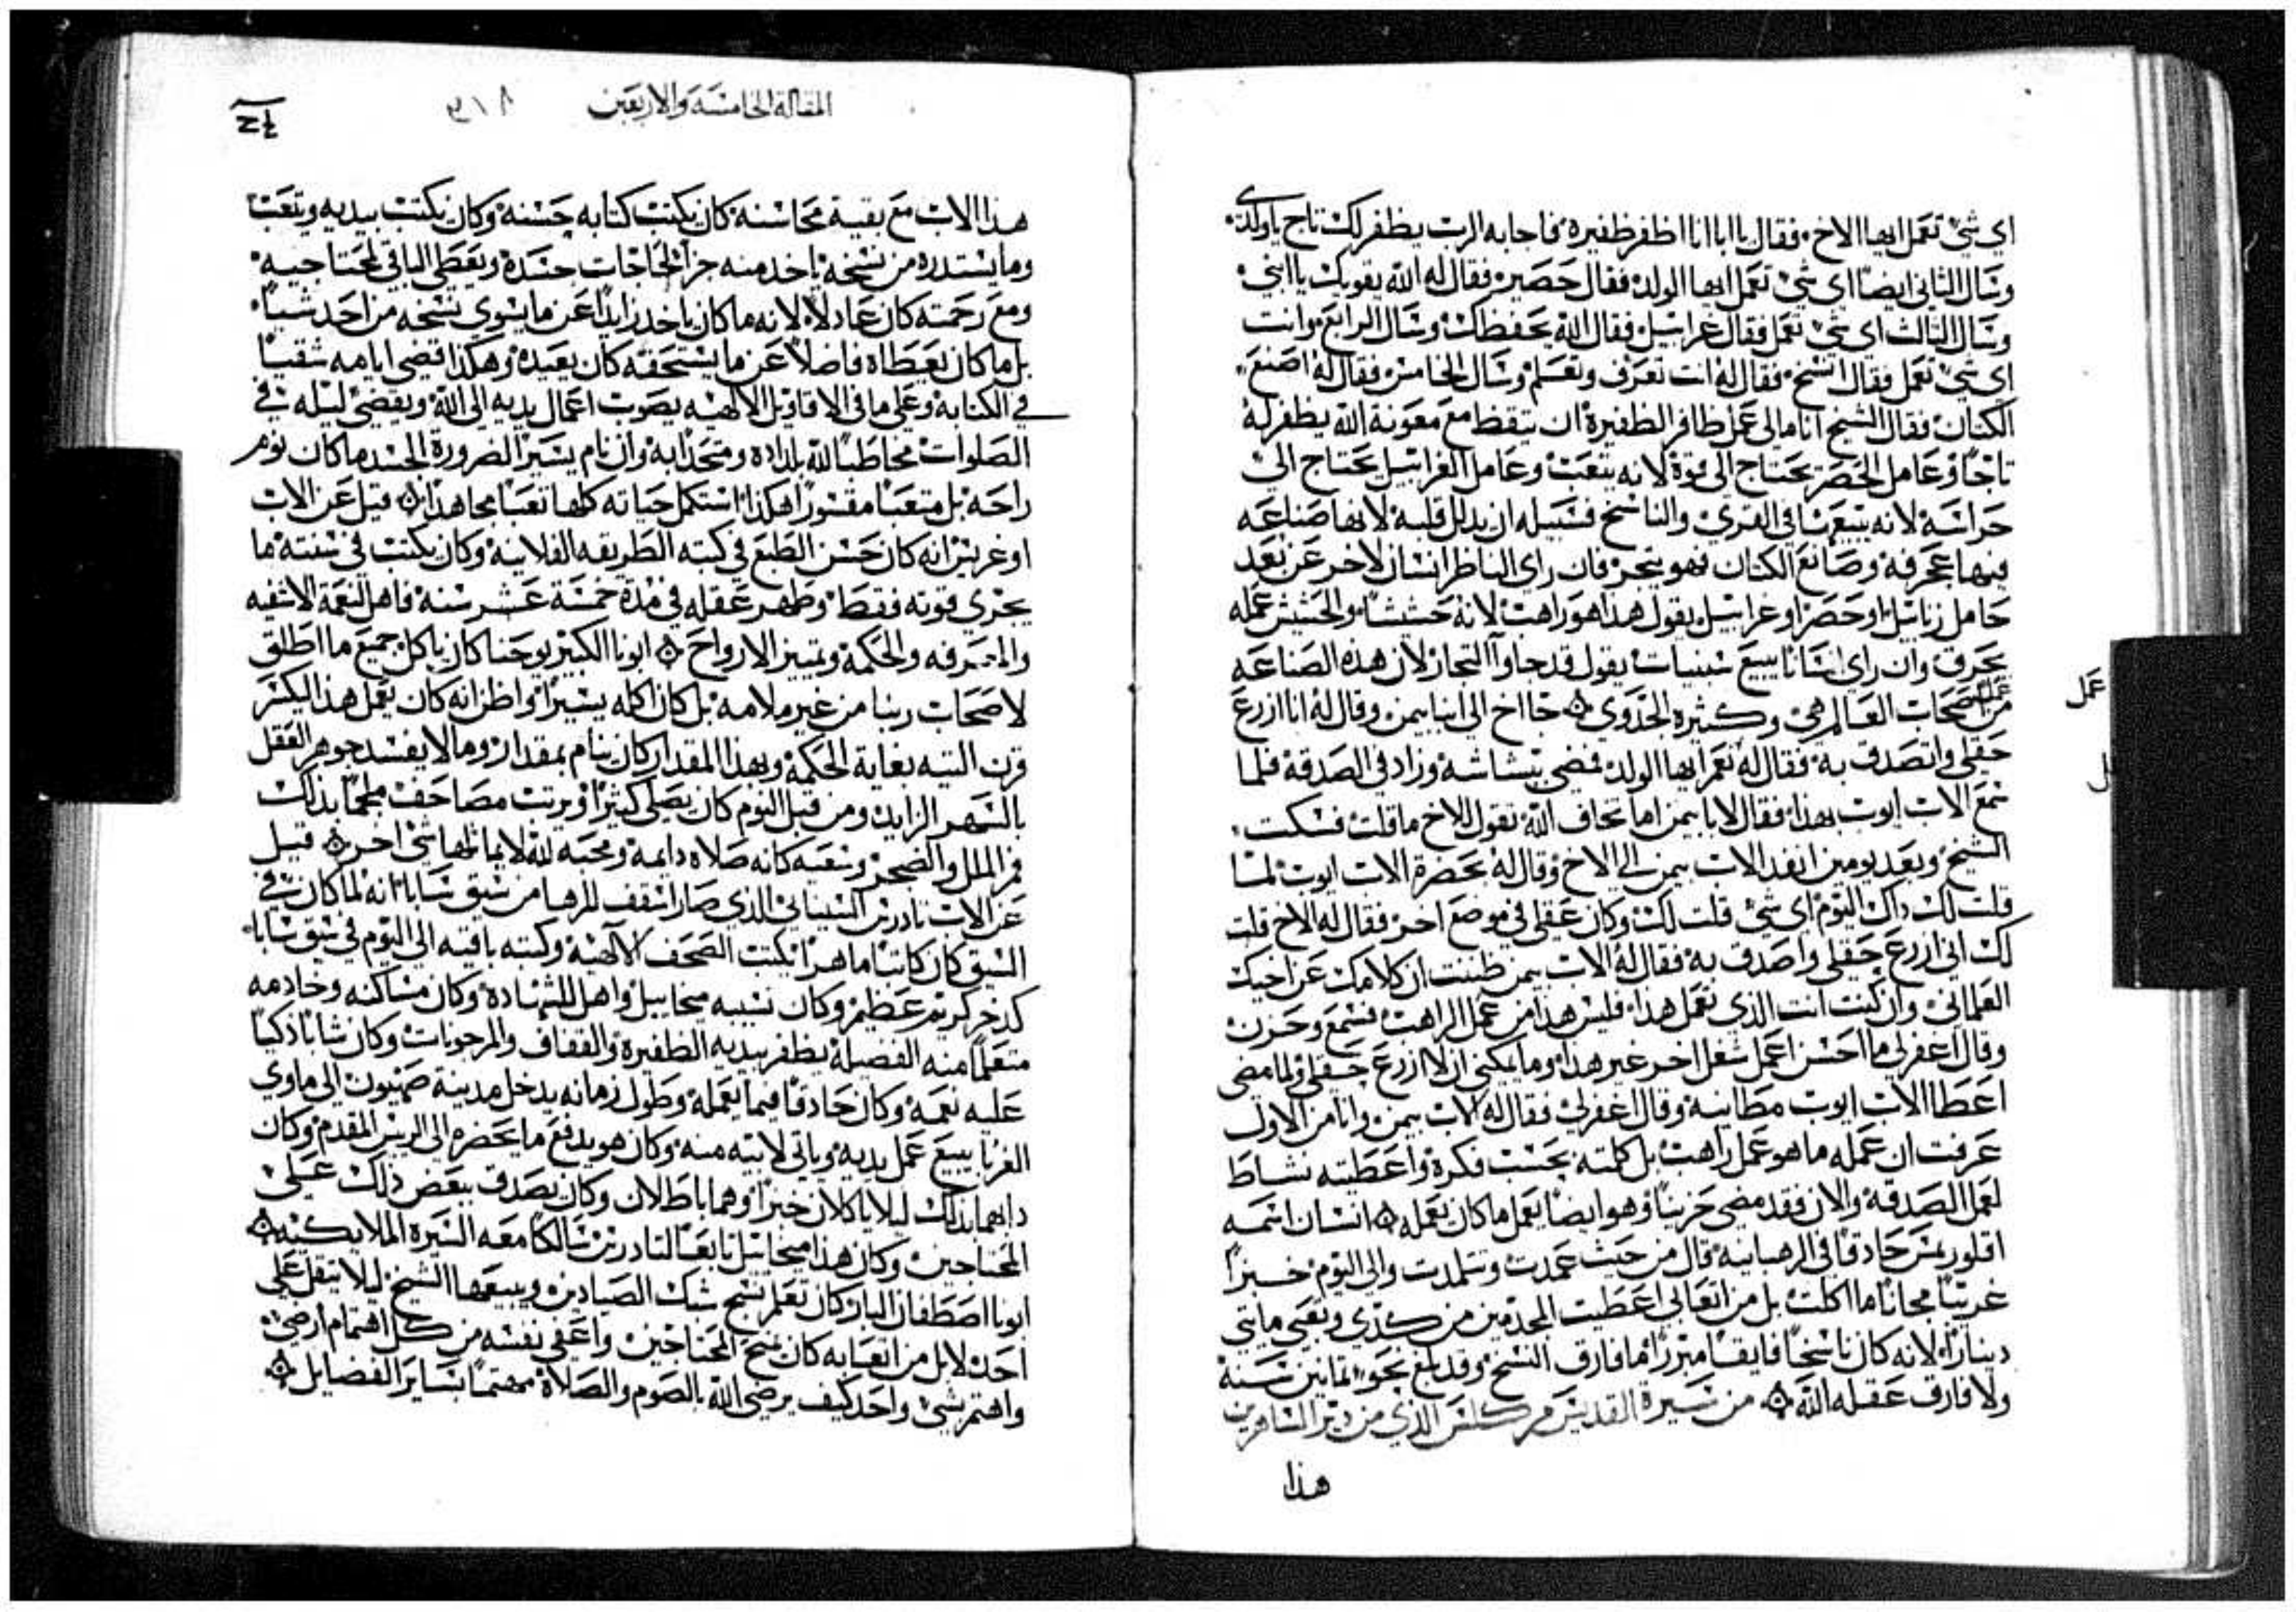 اي شي تعمل ايها الاخ فقال يا ابا انا اظفر ظفيره فاجابه الرب يظفر لك تاج ياولدي
وسال الثاني ايضا اي شي تعمل ايها الولد فقال حصير فقال له الله يقويك يا ابني
وسال الثالث اي شي تعمل فقال غرابيل فقال الله يحفظك وسال الرابع وانت
اي شي تعمل فقال انسخ فقال له انت تعرف وتعلم وسال الخامس فقال له اصنع
الكتان فقال الشيخ انا مالي عمل ظافر الظفيرة ان تيقظ مع معونة الله يظفر له
تاجا وعامل الحصر يحتاج الى قوة لانه يتعب وعامل الغرابيل يحتاج الى
حراسه لانه يتبعها في القرى والناسخ فسبيله ان يدلل قلبه لانها صناعه
فيها عجرفه وصانع الكتان فهو يتجر فان راى الناظر انسان لاخر عن بعد
حامل زنابيل او حصر او غرابيل يقول هذا هو راهب لانه حشيشا والحشيش عمله
يحرق وان راى انسانا يبيع سبنيات يقول قد جاوا التجار لان هذه الصناعه
من عمل اصحاب العالم هي وكثيرة الجدوى جا اخ الى انبا بيمن وقال له انا ازرع
حقلي واتصدق به فقال له نعم ايها الولد فمضى ببشاشه وزاد في الصدقة فلما
سمع الاب ايوب بهذا فقال لابا بيمن اما تخاف الله تقول للاخ ما قلت فسكت
الشيخ وبعد يومين انفد الاب بيمن الى الاخ وقال له بحضرة الاب ايوب لما
قلت لك داك اليوم اي شي قلت لك وكان عقلي في موضع اخر فقال له الاخ قلت
لك اني ازرع حقلي واصدق به فقال له الاب بيمن ظننت ان كلامك عن اخيك
العلماني وان كنت انت الذي تعمل هذا فليس هذا من عمل الراهب فسمع وحزن
وقال اغفر لي ما احسن اعمل شغل اخر غير هذا وما يمكني ان لا ازرع حقلي ولما مضى
اعطا الاب ايوب مطانيه وقال اغفر لي فقال له الاب بيمن وانا من الاول
عرفت ان عمله ما هو عمل راهب بل كلمته بحسب فكرة واعطيته نشاط
لعمل الصدقة والان فقد مضى حزينا وهو ايضا يعمل ما كان يعمله انسان اسمه
حادقا في الرهبانيه قال من حيث عمدت وتتلمدت والى اليوم خبزا
غريبا مجانا ما اكلت بل من اتعابي اعطيت المجدمين من كدي وتعبي مايتي
دينارا لانه كان ناسخا فايقا مبرزا ما فارق النسخ وقد بلغ نحو تمانين سنة
ولا فارق عقله الله من سيرة القديس الذي من دير الساهرين
هذا
عمل
المقالة الخامسة والاربعين ٣١٨
هذا الاب مع بقية محاسنه كان يكتب كتابه حسنه وكان يكتب بيديه ويتعب
وما يستدره من نسخه ياخد منه جزا لحاجات جسده ويعطي الباقي لمحتاجيه
ومع رحمته كان عادلا لانه ما كان ياخد زايدا عن ما يسوى نسخه من احد شيا
بل ما كان يعطاه فاضلا عن ما يستحقه كان يعيده وهكذا قضى ايامه شقيا
في الكتابة وعلى ما في الاقاويل الالهيه بصوب اعمال يديه الى الله ويقضي ليله في
الصلوات مخاطبا لله بلداده ومتحدا به وان نام يسيرا لضرورة الجسد ما كان نوم
راحه بل متعبا مقسورا هكذا استكمل حياته كلها تعبا مجاهدا قيل عن الاب
اوغريس انه كان حسن الطبع في كتبه الطريقه الفلانيه وكان يكتب في سنته ما
يجزي قوته فقط وطهر عقله في مدة خمسة عشر سنه فاهل لنعمة الاشفيه
والمعرفه والحكمة وتمييز الارواح ابونا الكبير يوحنا كان ياكل جميع ما اطلق
لاصحاب ربنا من غير ملامه بل كان اكله يسيرا واظن انه كان يعمل هذا ليكسر
قرن التيه بغاية الحكمة وبهذا المقدار كان ينام بمقدار وما لا يفسد جوهر العقل
بالسهر الزايد ومن قبل النوم كان يصلي كثيرا ويرتب مصاحف ملجما بذلك
فم الملل والضجر ونفسه كانه صلاه دايمة ومحبه لله لا يماثلها شي اخر قيل
عن الاب تادرس السيناني الذي صار اسقف للرها من سيق سابا انه لما كان في
السيق كان كاتبا ماهرا يكتب الصحف الالهية وكتبه باقيه الى اليوم في سيق سابا
كدخر كريم عظيم وكان نسيبه ميخاييل واهل للشهادة وكان مساكنه وخادمه
متعلما منه الفضيله يظفر بيديه الظفيرة والقفاف والمرجونات وكان شابا ذكيا
عليه نعمه وكان حادقا فيما يعمله وطول زمانه يدخل مدينة صهيون الى ماوى
الغربا يبيع عمل يديه وياتي لابيه منه وكان هو يدفع ما يحضره الى الريس المقدم وكان
دابهما بذلك ليلا ياكلان خبزا وهما باطلان وكان يصدق ببعض ذلك على
المحتاجين وكان هذا ميخاييل تابعا لتادرس سالكا معه السيرة الملايكيه
ابونا اصطفان البار كان تعلم نسج شبك الصيادين ويبيعها الشيخ ليلا يتقل على
احد لابل من اتعابه كان يمنح المحتاجين واعفى نفسه من كل اهتمام ارضي
واهتم بشي واحد كيف يرضي الله بالصوم والصلاة مهتما بساير الفضايل